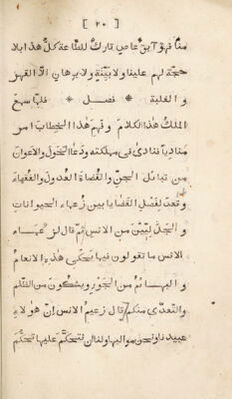 [ ٢٠ ]
منّا فهو آبق عاصٍ تارك للطاعة كلّ هذا بلا
حجّة لهم علينا ولا بيّنة ولا برهان الا القهر
والغلبة * فصل * فلما سمع
الملك هذا الكلام وفهم هذا الخطاب امر
مناديًا فنادى فى مملكته ودعا الخول والاعوان
من قبائل الجنّ والقضاة والعدول والفقهاء
وقعد لفصل القضايا بين زعماء الحيوانات
والجدليّين من الانس ثم قال لزعماء
الانس ما تقولون فيما يحكى هذه الانعام
والبهائم من الجور ويشكون من الظلم
والتعدّى منكم قال زعيم الانس إنّ هولاء
عبيدنا ونحن مواليها ولنا ان نتحكّم عليها تحكّم